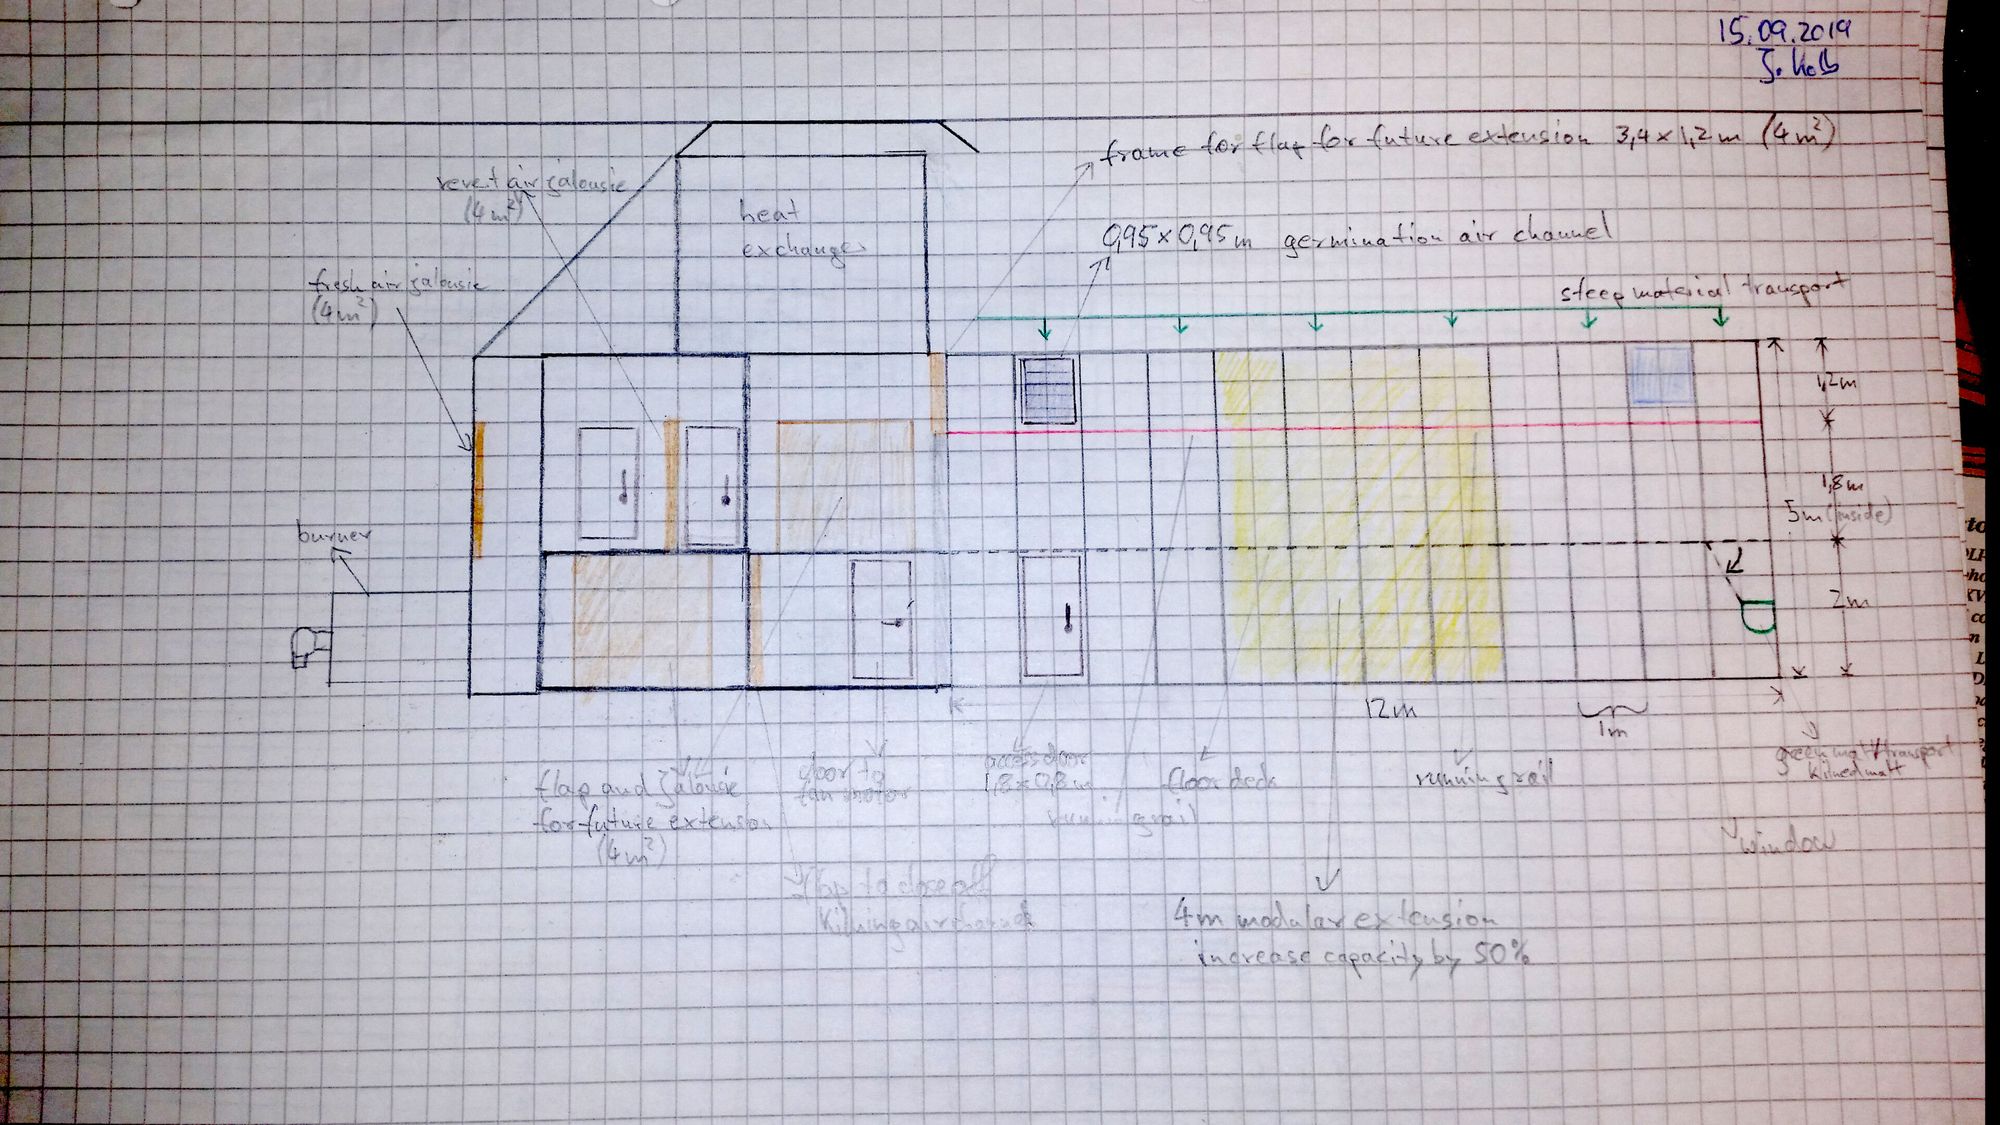 15.09.2019
J. Kolb
frame for flap for future extension 3,4 x 1,2 m (4 m²)
revert air jalousie
(4 m²)
heat
exchanger
0,95 x 0,95 m germination air channel
fresh air jalousie
(4 m²)
steep material transport
1,2 m
1,8 m
5 m (inside)
burner
2 m
12 m
1 m
green malt transport
kilned malt
flap and jalousie
for future extension
(4 m²)
door to
fan motor
access door
1,8 x 0,8 m
running rail
floor deck
running rail
window
flap to close all
Kilning air channel
4 m modular extension
increase capacity by 50 %